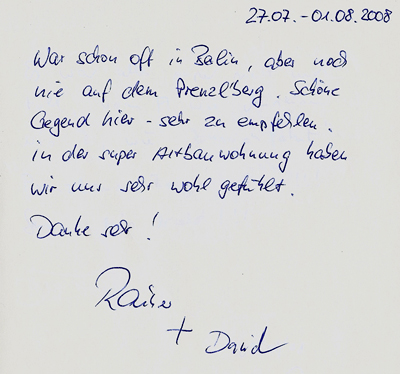 27.07.-01.08.2008
War schon oft in Berlin, aber noch
nie auf dem Prenzl'berg. Schöne
Gegend hier - sehr zu empfehlen.
in der super Altbauwohnung haben
wir uns sehr wohl gefühlt.
Danke sehr!
Rainer
+ David